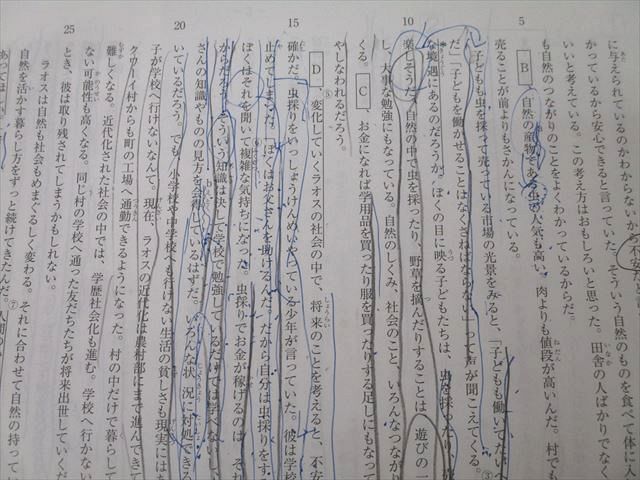 に与えられているのかわからないか不安
かっているから安心できると言っていた。そういう自然のものを食べて体に入
いいと考えている。この考え方はおもしろいと思った。田舎の人ばかりでなく
も自然のつながりのことをよくわかっているからだ。
B 、自然の産物である虫の人気も高い。肉よりも値段が高いんだ。村でも
売ることが前よりもさかんになっている。
子どもも虫を採って売っている市場の光景をみると、「子どもも働いてたいへ
だ」「子どもを働かせることはなくさねばならない」って声が聞こえてくる。③
な境遇にあるのだろうか。ぼくの目に映る子どもたちは、虫を採ったり、
楽しそうだ。自然の中で虫を採ったり、野草を摘んだりすることは「遊びの一
し、大事な勉強にもなっている。自然のしくみ、社会のこと、いろんなつながり
くる。 C 、お金になれば学用品を買ったり服を買ったりする足しにもなって
やしなわれるだろう。
D 、変化していくラオスの社会の中で、将来のことを考えると、不安
確かだ。虫採りをいっしょうけんめいやっている少年が言っていた。彼は学校
止めてしまった。「ぼくはお父さんを助けるんだ。だから自分は虫採りをする
ぼくはそれを聞いて複雑な気持ちになった。虫採りでお金が稼げるのは、それ
からだろう。そういう知識は決して学校で勉強しているだけでは学べないし、
さんの知識やものの見方を会得しているはずだ。いろんな状況に対処できる
いているだろう。でも、小学校や中学校へも行けない、生活の貧しさも現実には
子が学校へ行けないなんて。現在、ラオスの近代化は農村部にまで進んできて
クワーイ村からも町の工場へ通勤できるようになった。村の中だけで暮らして
難しくなる。近代化された社会の中では、学歴社会化も進む。学校へ行かない
ない可能性も高くなる。同じ村の学校へ通った友だちたちが将来出世していくだ
とき、彼は取り残されてしまうかもしれない。
ラオスは自然も社会もめまぐるしく変わる。それに合わせて自然の持って
自然を活かす暮らし方をずっと続けてきたんだ。⑦